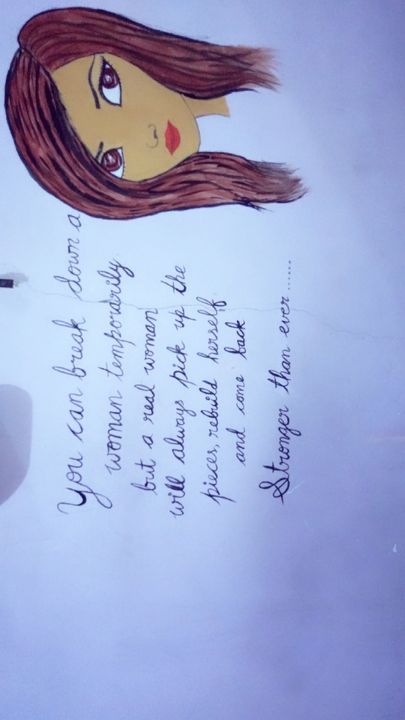 You can break down a
woman temporarily
but a real woman
will always pick up the
pieces, rebuild herself
and come back
Stronger than ever......